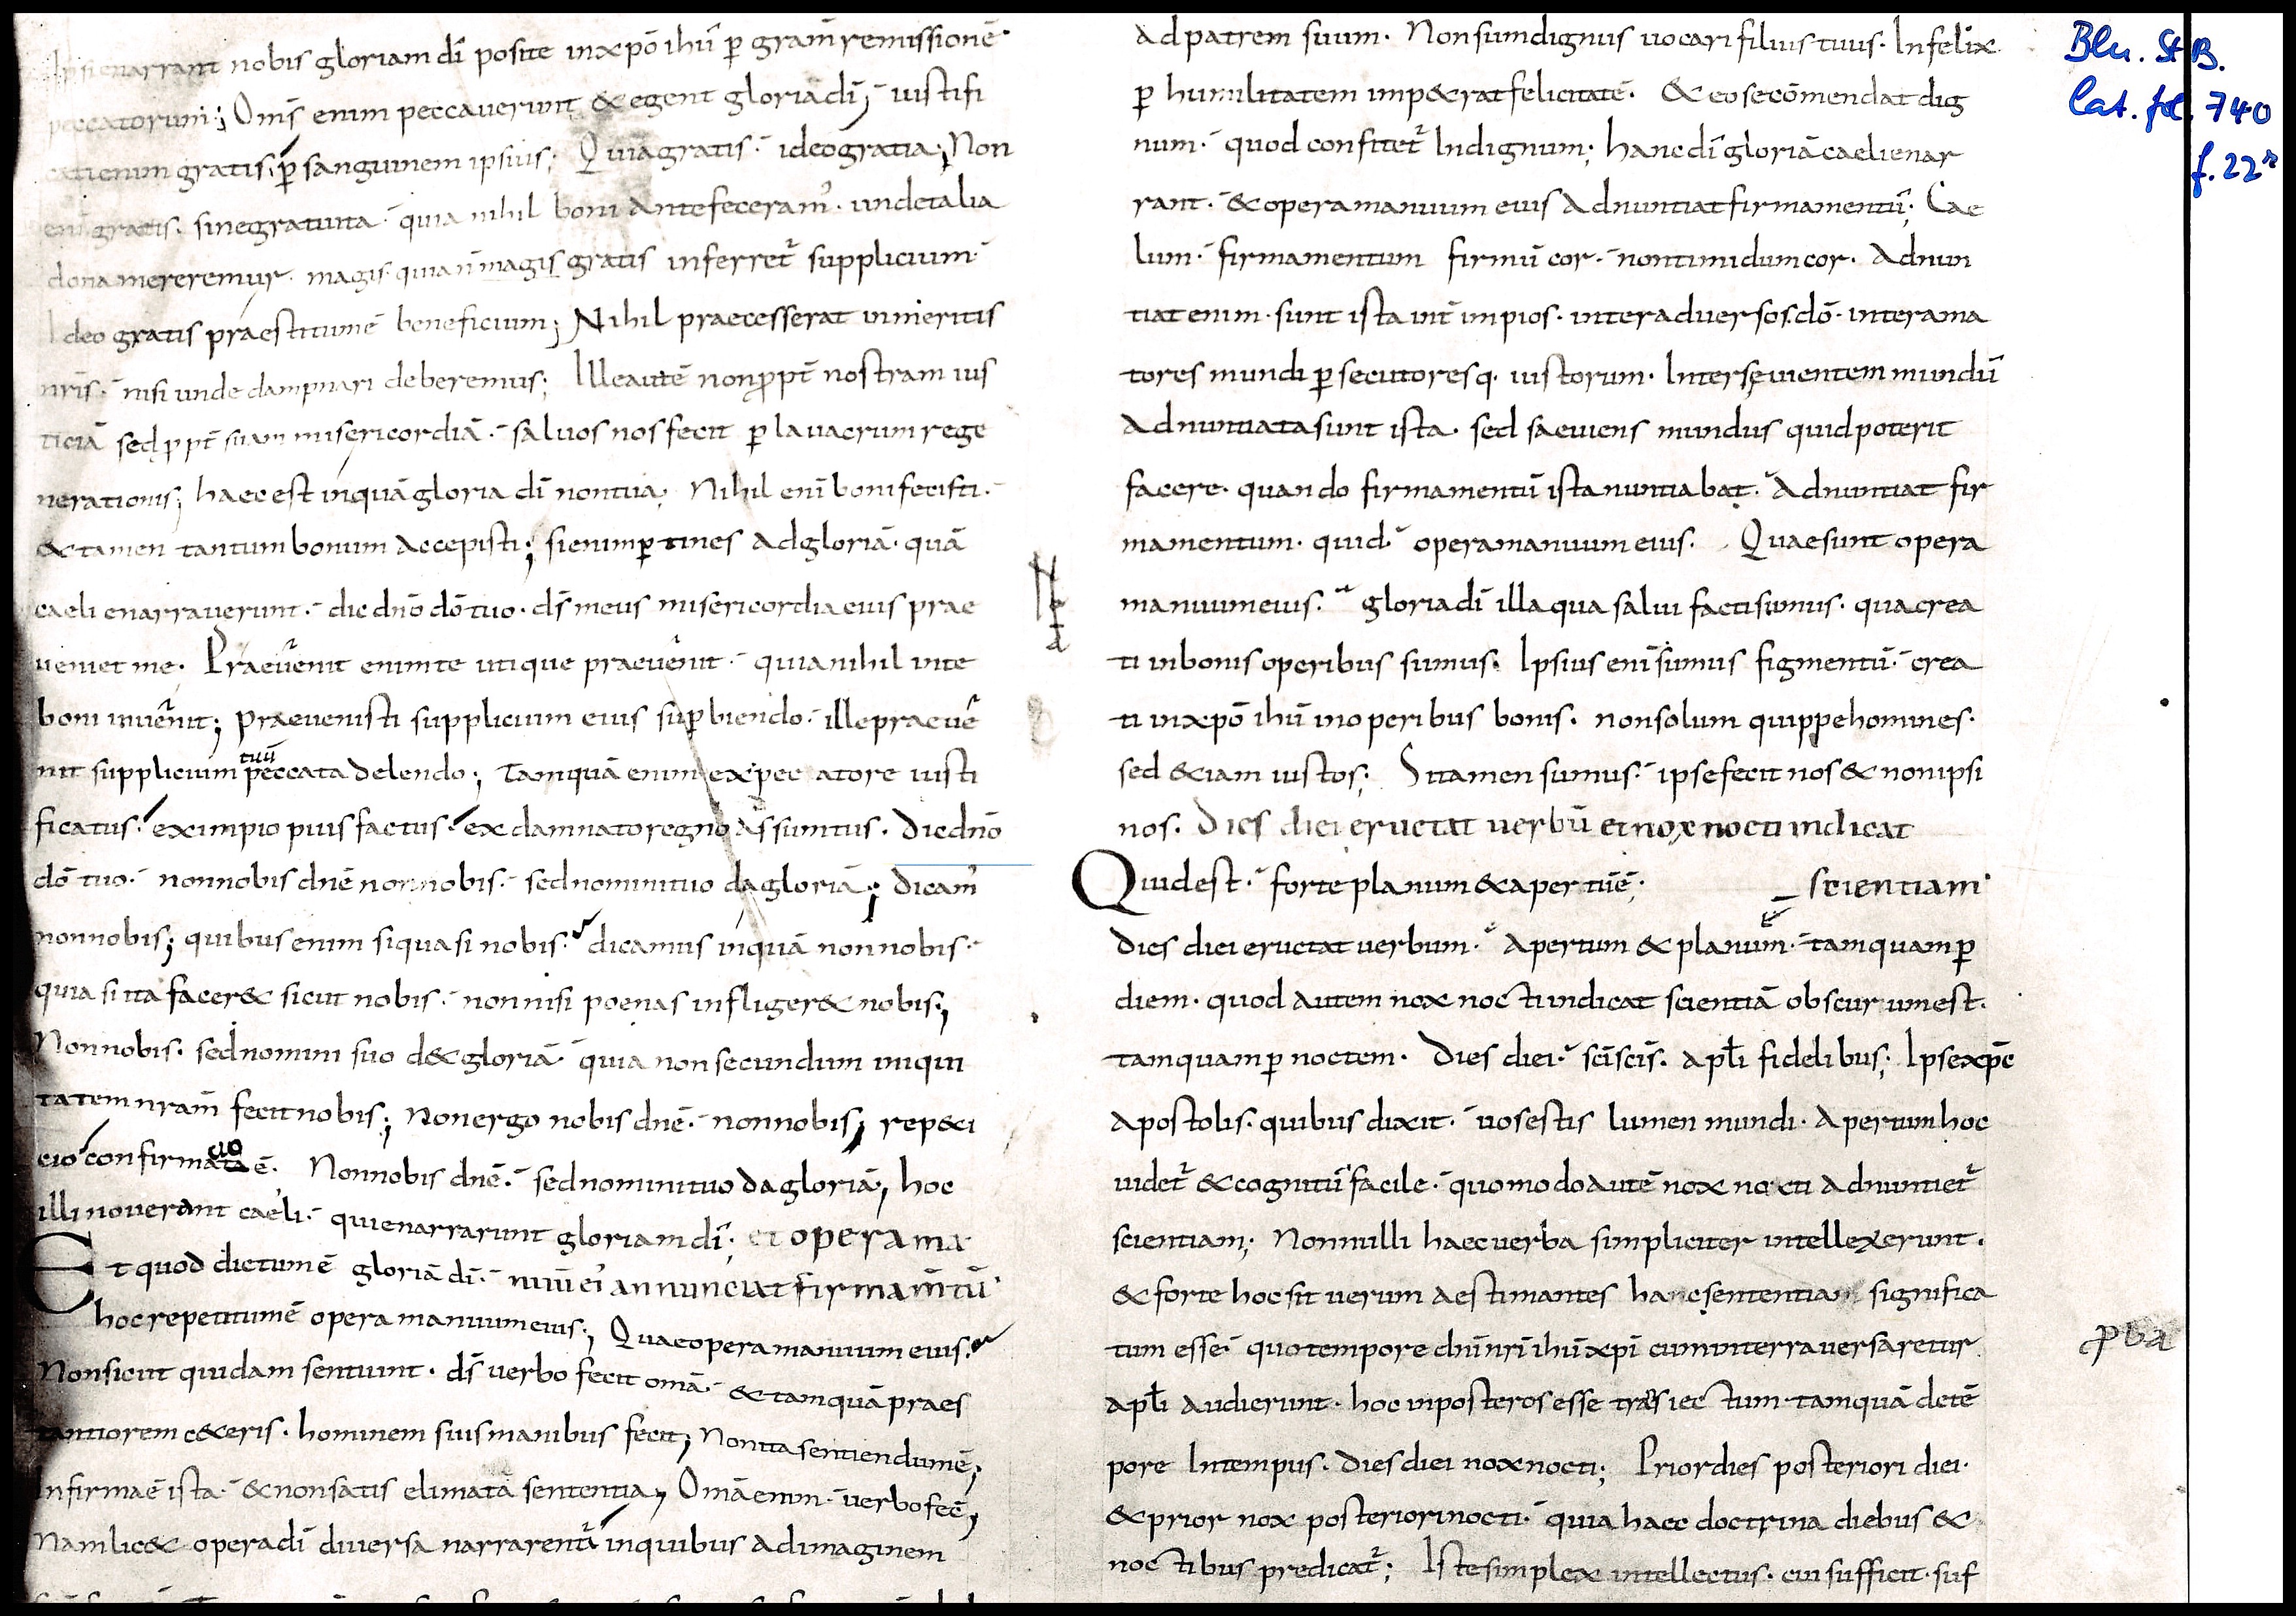 Ipsi enarrant nobis gloriam dī posite inxpō ihū ꝑ gram̄ remissionē
peccatorum; Omīs enim peccaverunt & egent gloriā dī; iustifi
cati enim gratis ꝑ sanguinem ipsius; Quia gratis ideo gratia; Non
enī gratis sine gratuita quia nihil boni ante feceram᾽ unde talia
dona mereremur magis quia n̄ magis gratis inferret᾽ supplicium
Ideo gratis praestitum ē beneficium; Nihil praecesserat in meritis
nr̄is nisi unde dampnari deberemus; Ille autē non ꝓpt̄ nostram ius
ticiā sed ꝓpt̄ suam misericordiā saluos nos fecit ꝑ lauacrum rege
nerationis; haec est inquā gloria dī non tua; Nihil enī boni fecisti
& tamen tantum bonum accepisti; si enim ꝑtines ad gloriā quā
caeli enarraverunt dic dnō dō tuo ds̄ meus misericordia eius prae
ueniet me. Praevēnit enim te utique praevēnit quia nihil in te
boni invēnit; praevenisti supplicium eius suꝑbiendo ille praevē
nit supplicium tuū peccata delendo; Tamquā enim ex peccatore iusti
ficatus ex impio pius factus ex damnato regno assumtus. Dic dnō
dō tuo non nobis dnē non nobis sed nomini tuo da gloriā; dicam᾽
non nobis; quibus enim si quasi nobis dicamus inquā non nobis
quia si ita facer& sicut nobis non nisi poenas infliger& nobis;
Non nobis sed nomini suo d& gloriā quia non secundum iniqui
tatem nram̄ fecit nobis; Non ergo nobis dnē non nobis; rep&i
cio confirmatio ē. Non nobis dnē sed nomini tuo da gloriā; hoc
illi noverant caeli qui enarrarunt gloriam dī; et opera ma
Et quod dictum ē gloriā dī nuū ei᾽ annunciat firmam̄tū
hoc repetitum ē opera manuum eius; Quae opera manuum eius
Non sicut quidam sentiunt ds̄ verbo fecit omā & tamquā praes
tantiorem c&eris hominem suis manibus fecit; Non ita sentiendum ē;
Infirma ē ista & non satis elimata sententia; Omā enim verbo fec̄;
Nam lic& opera dī diversa narrarent᾽ in quibus ad imaginem
Ad patrem suum. Non sum dignus uocari filius tuus. Infelix
ꝑ humilitatem imp&rat felicitatē. & eo se cōmendat dig
num quod confitet᾽ Indignum; hanc dī gloriā caeli enar
rant & opera manuum eius Adnuntiat firmamentū; Cae
lum firmamentum firmū cor non timidum cor. Adnun
tiat enim sunt ista int̄ impios inter adversos dō inter ama
tores mundi ꝑsecutoresq. iustorum. Inter sęuientem mundū
Adnuntiata sunt ista. sed saeuiens mundus quid poterit
facere quando firmamentū ista nuntiabat. Adnuntiat fir
mamentum quid opera manuum eius. Quae sunt opera
manuum eius. gloria dī illa qua salui facti sumus. qua crea
ti in bonis operibus sumus. Ipsius enī sumus figmentū crea
ti inxpō ihū in operibus bonis. non solum quippe homines.
sed &iam iustos; Si tamen sumus ipse fecit nos & non ipsi
nos. Dies diei eructat verbū et nox nocti indicat
Quid est forte planum & apertū ē; scientiam
dies diei eructat verbum Apertum & planum tamquam ꝑ
diem quod autem nox nocti indicat scientiā obscurum est.
tamquam ꝑ noctem. Dies diei sc̄i sc̄is. apłi fidelibus; Ipse xpc̄
apostolis quibus dixit uos estis lumen mundi. Apertum hoc
uidet᾽ & cognitū facile quomodo autē nox nocti adnuntiet᾽
scientiam; Nonnulli haec verba simpliciter intellexerunt.
& forte hoc sit verum aestimantes hanc sententiam significa
tum esse quo tempore dnī nrī ihū xpī cum in terra versaretur
apłi audierunt hoc in posteros esse traiectum tamquā de tē
pore In tempus. dies diei nox nocti; Prior dies posteriori diei
& prior nox posteriori nocti quia haec doctrina diebus &
noctibus predicat᾽; Iste simplex intellectus cui sufficit suf
Bln. StB.
Lat. fol. 740
f. 22r